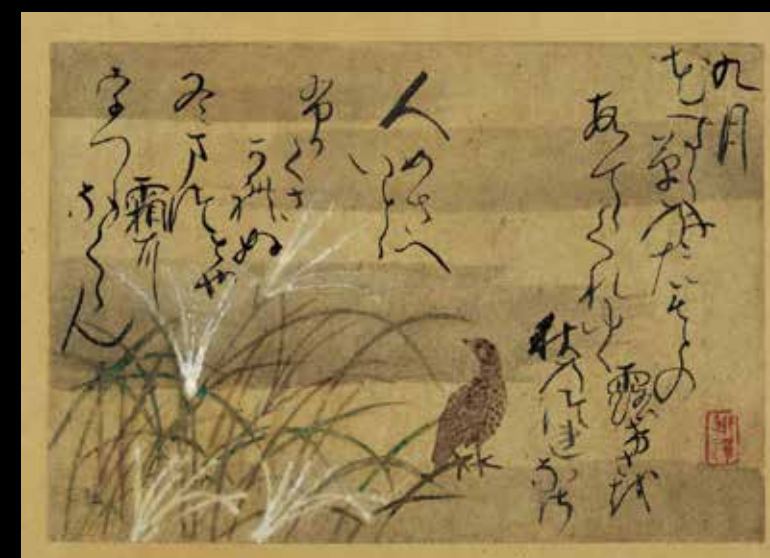 九月
花すゝき草のたもとの
露けさを
すてゝくれゆく
秋のつれなさ
人めさへ
いとゝ
ふかくさ
かれぬ
とや
冬まつ
霜に
うつら
なくらん